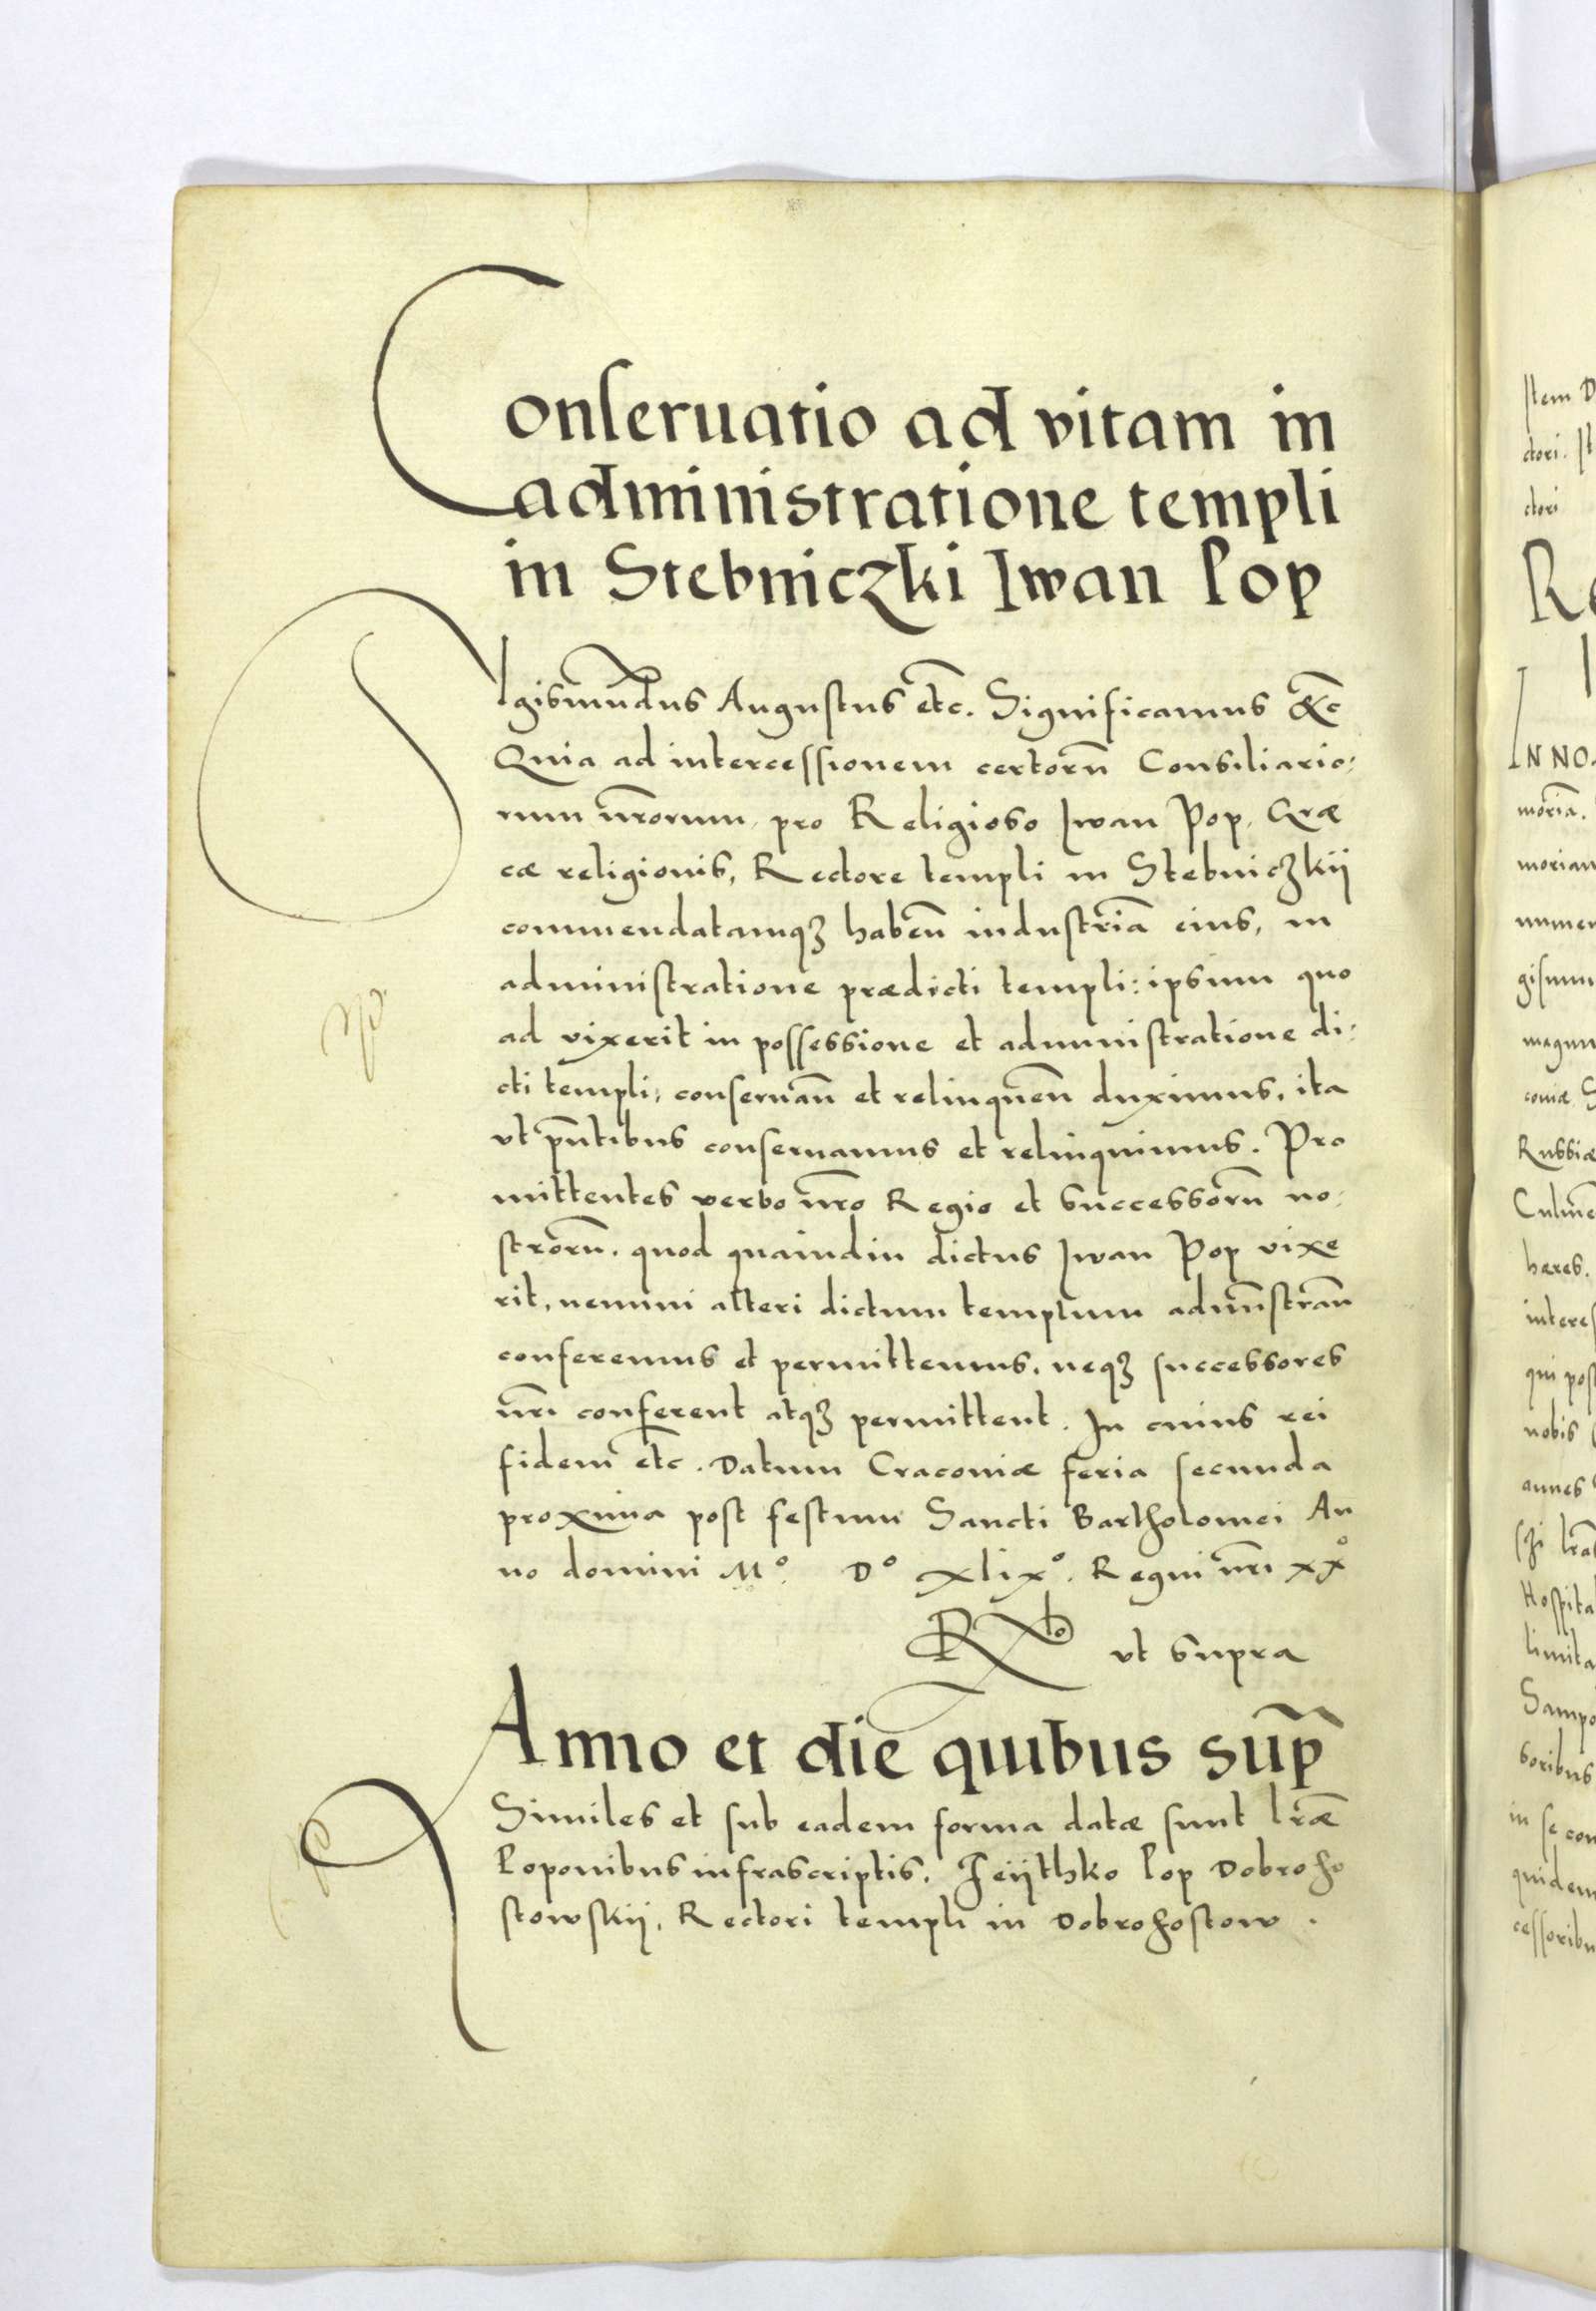 Conseruatio ad vitam in
administratione templi
in Stebniczki Iwan Pop
Sigismundus Augustus etc. Significamus &c
Quia ad intercessionem certoru̅ Consiliario:
rum nr̅orum, pro Religioso Iwan Pop, Græ
cæ religionis, Rectore templi in Stebniczkij
commendatamqꝫ haben̅ industria̅ eius, in
administratione prædicti templi: ipsum quo
ad vixerit in possessione et administratione di:
cti templi, conseruan̅ et relinquen̅ duximus, ita
vt pn̅tibus conseruamus et relinquimus. Pro
mittentes verbo nr̅o Regio et successoru̅ no:
stroru̅, quod quamdiu dictus Iwan Pop vixe
rit, nemini alteri dictum templum admin̅stran̅
conferemus et permittemus, neqꝫ successores
nr̅i conferent atqꝫ permittent. In cuius rei
fidem etc. Datum Cracouiæ feria secunda
proxima post festum Sancti Bartholomei An
no domini Mº. Dº xlixº. Regni nr̅i xxº
vt supra
Anno et die quibus sup̅
Similes et sub eadem forma datæ sunt lr̅æ
Poponibus infrascriptis. Feijthko Pop Dobroho
stowskij, Rectori templi in Dobrohostow.
Item D
ctori. It
ctori
Re
IN NO
moria̅.
morian
numer
gisum
magnu
couiæ S
Russiæ
Culme̅
hæres.
interes
qui post
nobis
annes
Hospita
limita
Sampo
soribus
in se con
quidem
cessoribu